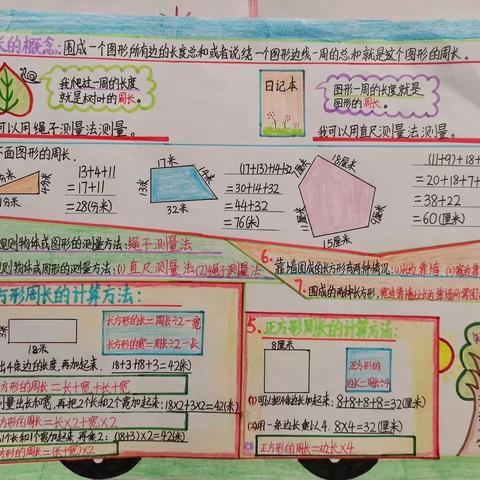 长的概念:围成一个图形所有边的长度总和或者说绕一个图形边线一周的总和就是这个图形的周长。
我爬过一周的长度
就是树叶的周长。
日记本
图形一周的长度就是
图形的周长。
可以用绳子测量法测量。
我可以用直尺测量法测量。
下面图形的周长.
13+4+11
=17+11
=28(分米)
17米
14米
13米
32米
(17+13)+14+32
=30+14+32
=44+32
=76(米)
18厘米
9厘米
15厘米
(11+9)+18+
=20+18+7+
=38+22
=60(厘米)
规则物体或图形的测量方法:绳子测量法
则物体或图形的测量方法:(1)直尺测量法(2)绳子测量法
6.靠墙围成的长方形有两种情况:(1)长边靠墙
7.围成的两种长方形,宽边靠墙比长边靠墙所需
方形周长的计算方法:
18米
长方形的长=周长÷2-宽
长方形的宽=周长÷2-长
出4条边的长度,再加起来.18+3+18+3=42(米)
方形的周长=长+宽+长+宽
量出长和宽,再把2个长和2个宽加起来:18×2+3×2=42(米)
方形的周长=长×2+宽×2
1个长和1个宽加起来再乘2:(18+3)×2=42(米)
方形的周长=(长+宽)×2
5.正方形周长的计算方法:
8厘米
正方形的
边长=周长÷4
(1)可以把4条边长加起来:8+8+8+8=32(厘米)
(2)用一条边长乘以4:8×4=32(厘米)
正方形的周长=边长×4